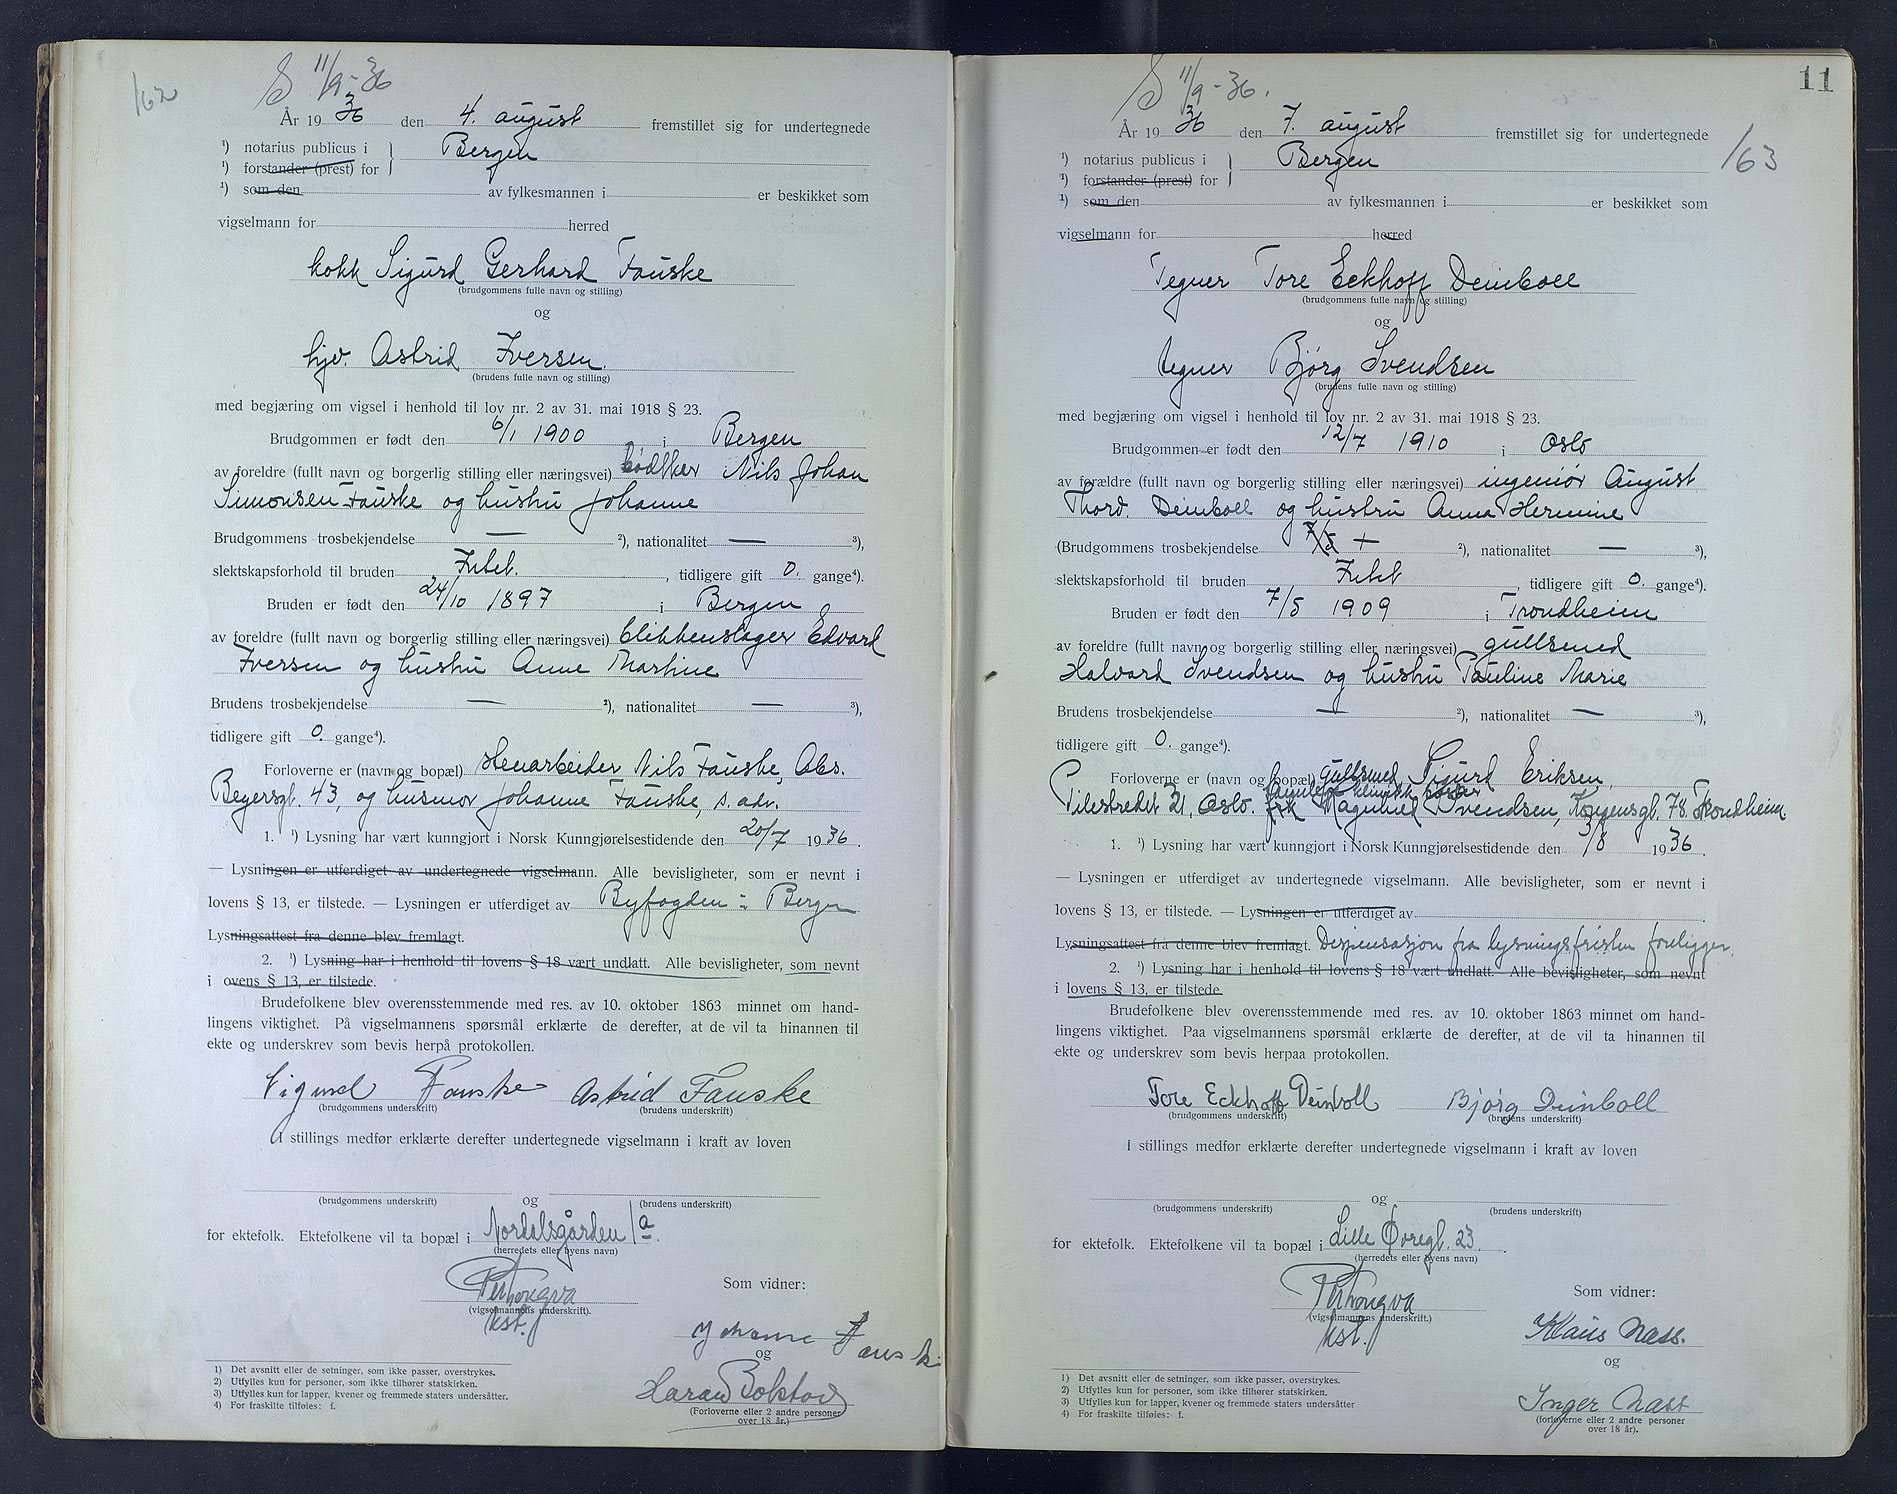 162
S 11/9 - 36
År 1936 den 4. august fremstillet sig for undertegnede
¹) notarius publicus i } Bergen
¹) forstander (prest) for
¹) som den av fylkesmannen i er beskikket som
vigselmann for herred
kokk Sigurd Gerhard Fauske
(brudgommens fulle navn og stilling)
og
hjv. Astrid Iversen.
(brudens fulle navn og stilling)
med begjæring om vigsel i henhold til lov nr. 2 av 31. mai 1918 § 23.
Brudgommen er født den 6/1 1900 i Bergen
av foreldre (fullt navn og borgerlig stilling eller næringsvei) bødker Nils Johan
Simonsen Fauske og hustru Johanne
Brudgommens trosbekjendelse — ²), nationalitet — ³),
slektskapsforhold til bruden Intet. , tidligere gift 0. gange⁴).
Bruden er født den 24/10 1897 i Bergen
av foreldre (fullt navn og borgerlig stilling eller næringsvei) blikkenslager Edvard
Iversen og hustru Anne Martine
Brudens trosbekjendelse — ²), nationalitet — ³),
tidligere gift 0. gange⁴).
Forloverne er (navn og bopæl) Nils Fauske, Abs.
Beyersgt. 43, og husmor Johanne Fauske, s. adr.
1. ¹) Lysning har vært kunngjort i Norsk Kunngjørelsestidende den 20/7 1936.
— Lysningen er utferdiget av undertegnede vigselmann. Alle bevisligheter, som er nevnt i
lovens § 13, er tilstede. — Lysningen er utferdiget av Byfogden i Bergen
Lysningsattest fra denne blev fremlagt.
2. ¹) Lysning har i henhold til lovens § 18 vært undlatt. Alle bevisligheter, som nevnt
i ovens § 13, er tilstede.
Brudefolkene blev overensstemmende med res. av 10. oktober 1863 minnet om hand-
lingens viktighet. På vigselmannens spørsmål erklærte de derefter, at de vil ta hinannen til
ekte og underskrev som bevis herpå protokollen.
Sigurd Fauske Astrid Fauske
(brudgommens underskrift) (brudens underskrift)
I stillings medfør erklærte derefter undertegnede vigselmann i kraft av loven
og
(brudgommens underskrift) (brudens underskrift)
for ektefolk. Ektefolkene vil ta bopæl i Nordalsgården 1a.
(herredets eller byens navn)
Som vidner:
(vigselmannens underskrift).
kst.
Johanne Fauske
og
Bolstad
(Forloverne eller 2 andre personer
over 18 år.)
1) Det avsnitt eller de setninger, som ikke passer, overstrykes.
2) Utfylles kun for personer, som ikke tilhører statskirken.
3) Utfylles kun for lapper, kvener og fremmede staters undersåtter.
4) For fraskilte tilføies: f.
11
163
S 11/9 - 36.
År 1936 den 7. august fremstillet sig for undertegnede
¹) notarius publicus i } Bergen
¹) forstander (prest) for
¹) som den av fylkesmannen i er beskikket som
vigselmann for herred
Tegner Tore Eckhoff Deinboll
(brudgommens fulle navn og stilling)
og
tegner Bjørg Svendsen
(brudens fulle navn og stilling)
med begjæring om vigsel i henhold til lov nr. 2 av 31. mai 1918 § 23.
Brudgommen er født den 12/7 1910 i Oslo
av forældre (fullt navn og borgerlig stilling eller næringsvei) ingeniør August
Thord. Deinboll og hustru Anna Hermine
(Brudgommens trosbekjendelse 7/5 + ²), nationalitet — ³),
slektskapsforhold til bruden Intet , tidligere gift 0. gange⁴).
Bruden er født den 7/5 1909 i Trondheim
av foreldre (fullt navn og borgerlig stilling eller næringsvei) gullsmed
Halvard Svendsen og hustru Pauline Marie
Brudens trosbekjendelse — ²), nationalitet — ³),
tidligere gift 0. gange⁴).
Forloverne er (navn og bopæl) gullsmed Sigurd Eriksen,
Pilestredet 21, Oslo. frk Magnhild Svendsen, Kongensgt. 78. Trondheim
1. ¹) Lysning har vært kunngjort i Norsk Kunngjørelsestidende den 3/8 1936.
— Lysningen er utferdiget av undertegnede vigselmann. Alle bevisligheter, som er nevnt i
lovens § 13, er tilstede. — Lysningen er utferdiget av
Lysningsattest fra denne blev fremlagt. Dispensasjon fra lysningsfristen foreligger.
2. ¹) Lysning har i henhold til lovens § 18 vært undlatt. Alle bevisligheter, som nevnt
i lovens § 13, er tilstede.
Brudefolkene blev overensstemmende med res. av 10. oktober 1863 minnet om hand-
lingens viktighet. Paa vigselmannens spørsmål erklærte de derefter, at de vil ta hinannen til
ekte og underskrev som bevis herpaa protokollen.
Tore Eckhoff Deinboll Bjørg Deinboll
(brudgommens underskrift) (brudens underskrift)
I stillings medfør erklærte derefter undertegnede vigselmann i kraft av loven
og
(brudgommens underskrift) (brudens underskrift)
for ektefolk. Ektefolkene vil ta bopæl i Lille Øvregt. 23.
(herredets eller byens navn)
Som vidner:
(vigselmannens underskrift).
kst.
Klaus Nass.
og
Inger Nass
(forloverne eller 2 andre personer
over 18 år).
1) Det avsnitt eller de setninger, som ikke passer, overstrykes.
2) Utfylles kun for personer, som ikke tilhører statskirken.
3) Utfylles kun for lapper, kvener og fremmede staters undersåtter
4) For fraskilte tilføies: f.